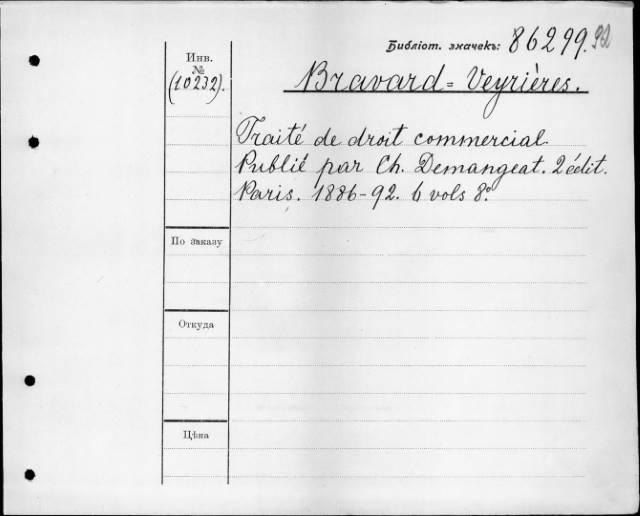 Библіот. значекъ: 86299.92
Инв.
№
(10232).
Bravard=Veyrières.
Traité de droit commercial.
Publié par Ch. Demangeat. 2 édit.
Paris. 1886-92. 6 vols 8º
По заказу
Откуда
Цѣна